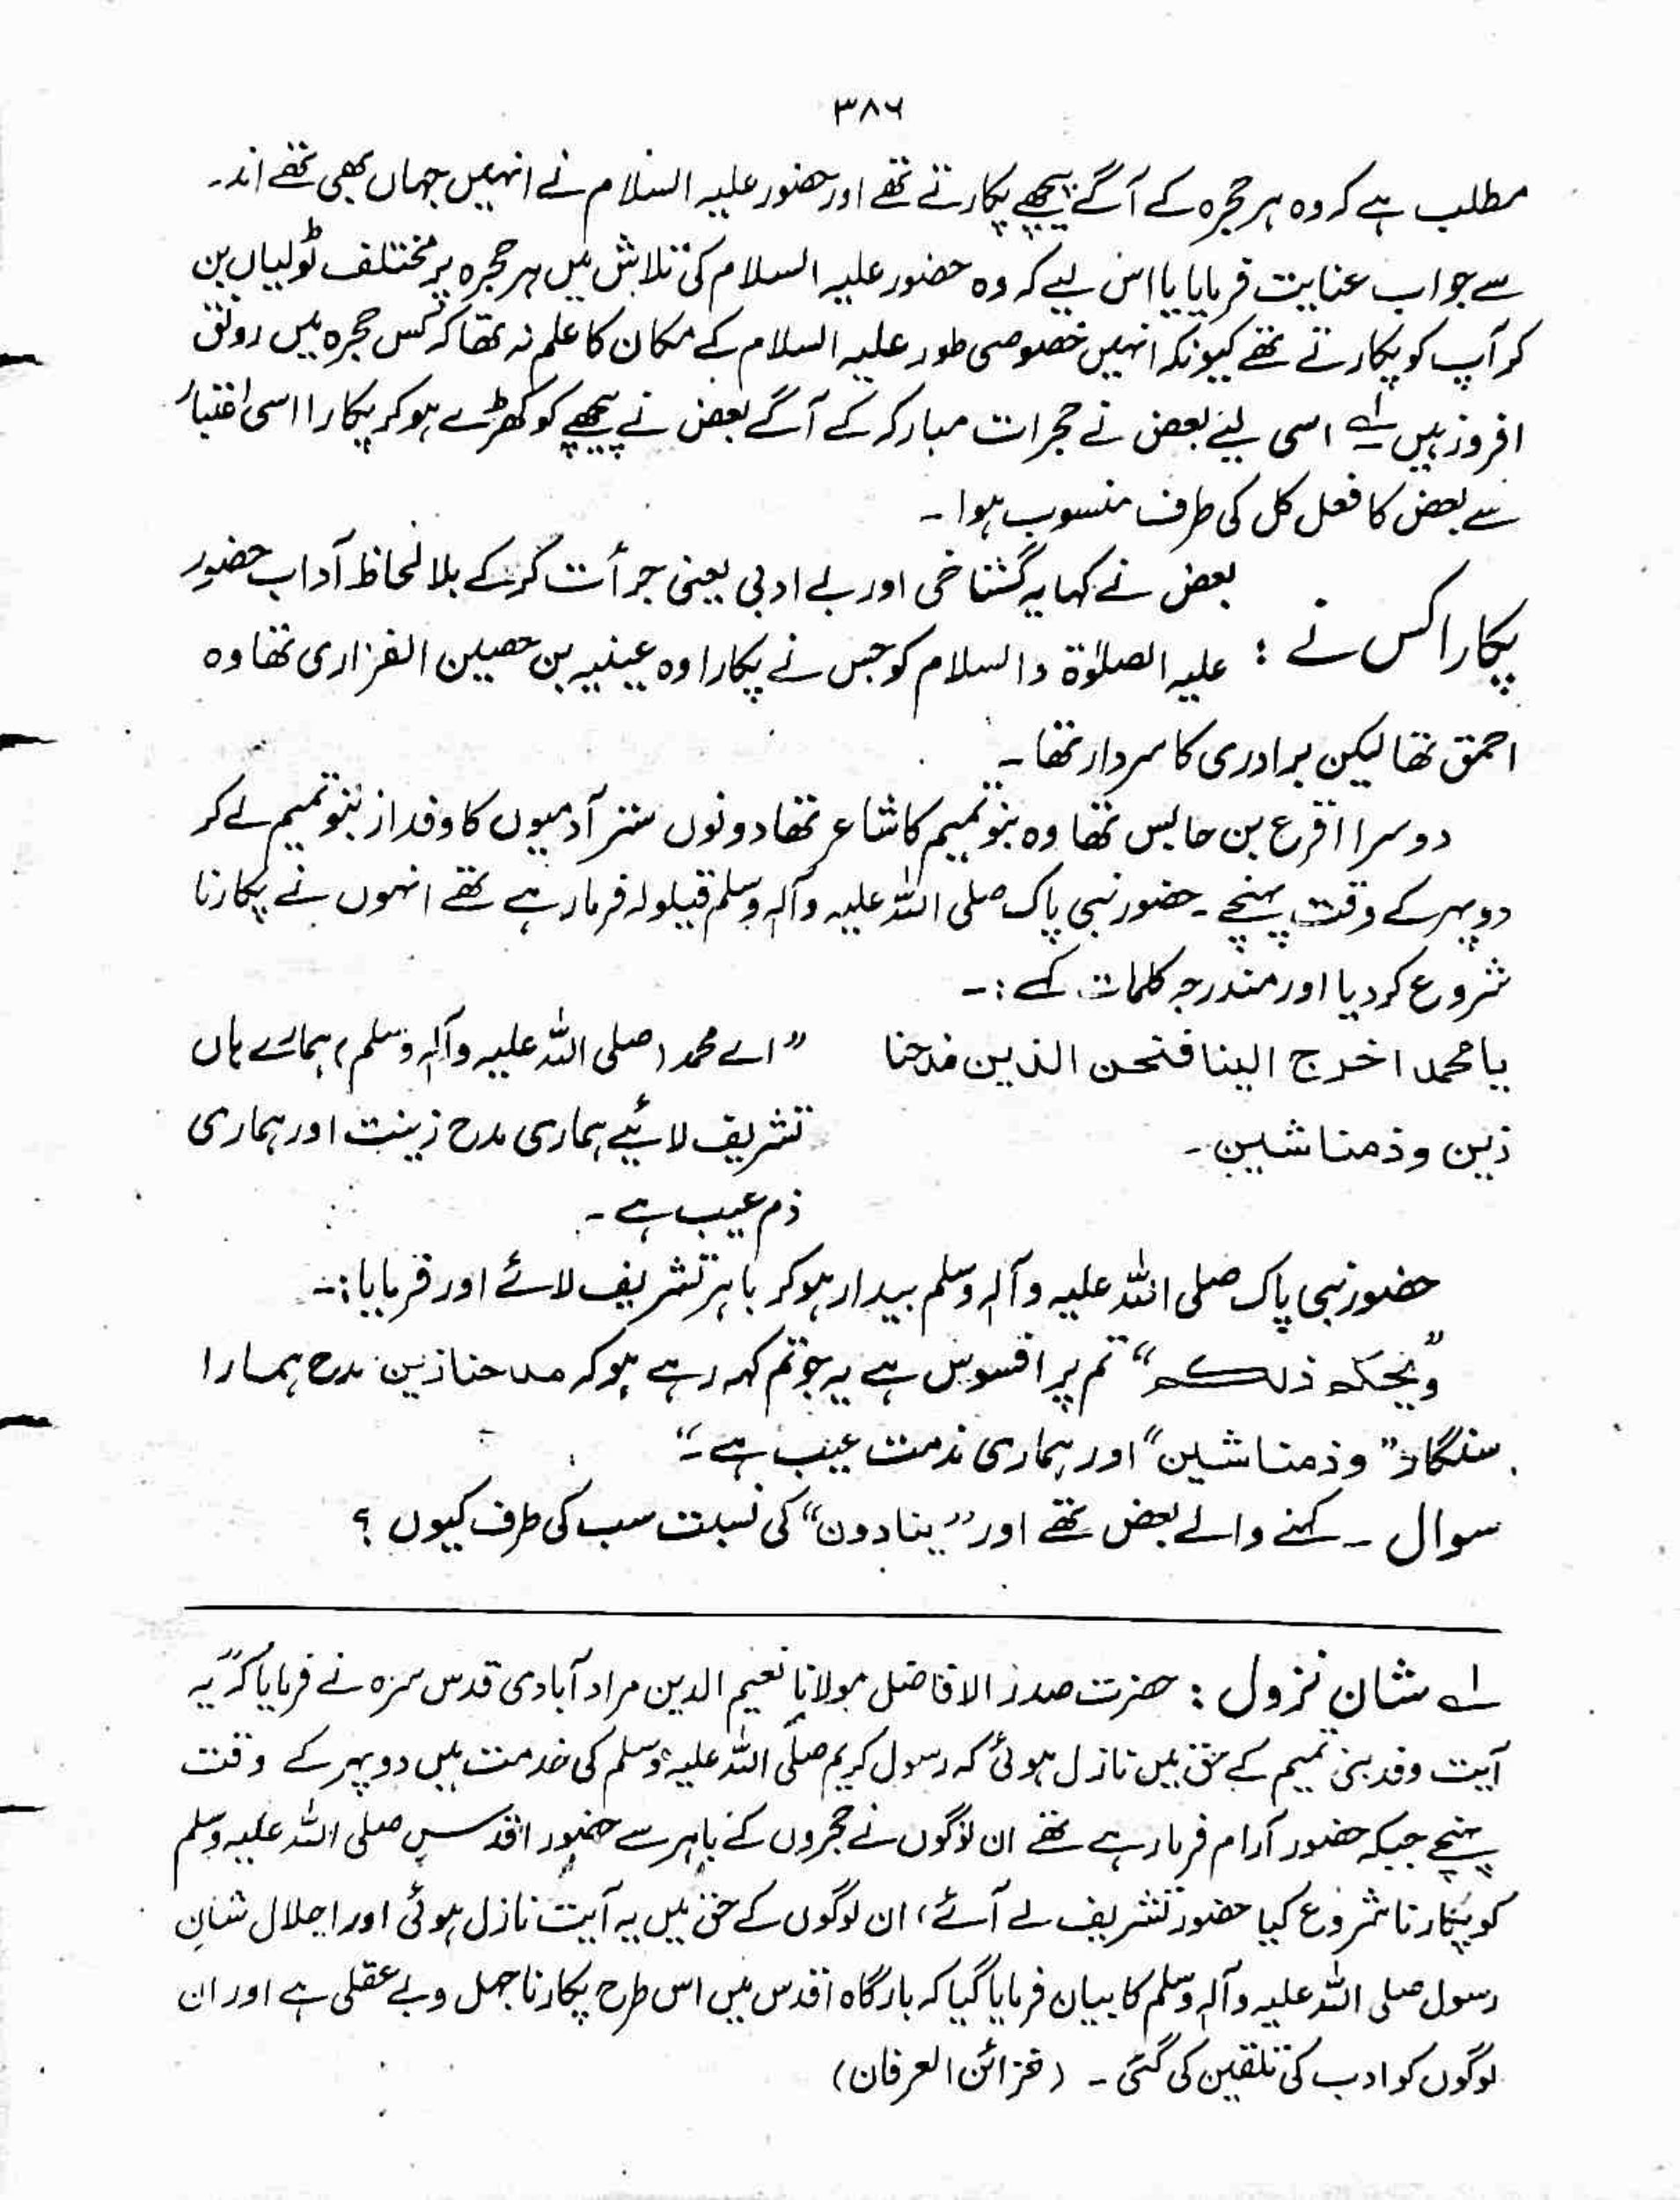 ۳۸۶
مطلب ہے کہ وہ ہر حجرہ کے آگے پیچھے پکارتے تھے اور حضور علیہ السلام نے انہیں جہاں بھی تھے اند۔
سے جواب عنایت فرمایا یا اس لیے کہ وہ حضور علیہ السلام کی تلاش میں ہر حجرہ پر مختلف ٹولیاں بن
کر آپ کو پکارتے تھے کیونکہ انہیں خصوصی طور علیہ السلام کے مکان کا علم نہ تھا کہ کس حجرہ میں رونق
افروز ہیں لہ اسی لیئے بعض نے حجرات مبارکہ کے آگے بعض نے پیچھے کو کھڑے ہو کر پکارا اسی اعتبار
سے بعض کا فعل کل کی طرف منسوب ہوا ۔
پکارا کس نے : بعض نے کہا یہ گستاخی اور بے ادبی یعنی جرأت کرکے بلا لحاظ آداب حضور
علیہ الصلوٰۃ والسلام کو جس نے پکارا وہ عینیہ بن حصین الفزاری تھا وہ
احمق تھا لیکن برادری کا سردار تھا ۔
دوسرا اقرع بن حابس تھا وہ بنو تمیم کا شاعر تھا دونوں ستر آدمیوں کا وفد از بنو تمیم لے کر
دوپہر کے وقت پہنچے ۔ حضور نبی پاک صلی اللہ علیہ وآلہ وسلم قیلولہ فرما رہے تھے انہوں نے پکارنا
شروع کر دیا اور مندرجہ کلمات کہے :۔
یا محمد اخرج الینا فنحن الذین مدحنا
زین وذمنا شین ۔
” اے محمد (صلی اللہ علیہ وآلہ وسلم) ہمارے ہاں
تشریف لائیے ہماری مدح زینت اور ہماری
ذم عیب ہے ۔
حضور نبی پاک صلی اللہ علیہ وآلہ وسلم بیدار ہو کر باہر تشریف لائے اور فرمایا :۔
”ویحکم ذلکم“ تم پر افسوس ہے یہ جو تم کہہ رہے ہو کہ مدحنا زین مدح ہمارا
سنگار ” وذمنا شین “ اور ہماری مذمت عیب ہے ۔“
سوال ۔ کہنے والے بعض تھے اور ”ینادون“ کی نسبت سب کی طرف کیوں ؟
لہ شان نزول : حضرت صدر الافاضل مولانا نعیم الدین مراد آبادی قدس سرہ نے فرمایا کہ ”یہ
آیت وفد بنی تمیم کے حق میں نازل ہوئی کہ رسول کریم صلی اللہ علیہ وسلم کی خدمت میں دوپہر کے وقت
پہنچے جبکہ حضور آرام فرما رہے تھے ان لوگوں نے حجروں کے باہر سے حضور اقدس صلی اللہ علیہ وسلم
کو پکارنا شروع کیا حضور تشریف لے آئے، ان لوگوں کے حق میں یہ آیت نازل ہوئی اور اجلال شانِ
رسول صلی اللہ علیہ وآلہ وسلم کا بیان فرمایا گیا کہ بارگاہ اقدس میں اس طرح پکارنا جہل و بے عقلی ہے اور ان
لوگوں کو ادب کی تلقین کی گئی ۔ (خزائن العرفان)